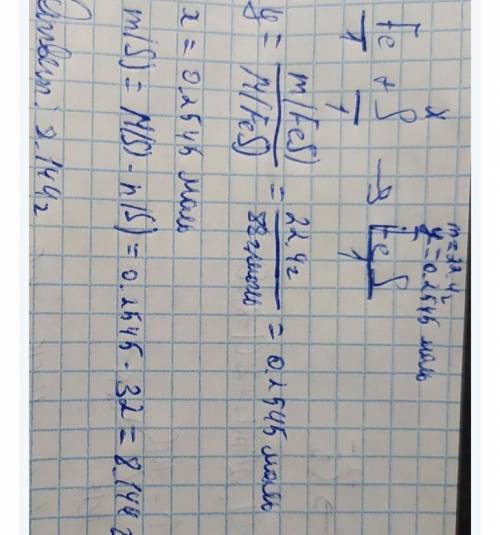 m=22.4г
x y=0.2545 моль
Fe + S → FeS
1 1 1
y = m(FeS) / M(FeS) = 22.4г / 88г/моль = 0.2545 моль
x = 0.2545 моль
m(S) = M(S) · n(S) = 0.2545 · 32 = 8.144 г
Ответ: 8.144г